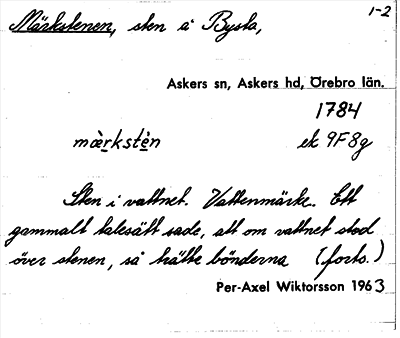 1-2
Märkstenen, sten å Bysta,
Askers sn, Askers hd, Örebro län.
1784
mȧrkstėn ek 9F8g
Sten i vattnet. Vattenmärke. Ett
gammalt talesätt sade, att om vattnet stod
över stenen, så bönderna (forts.)
Per-Axel Wiktorsson 1963